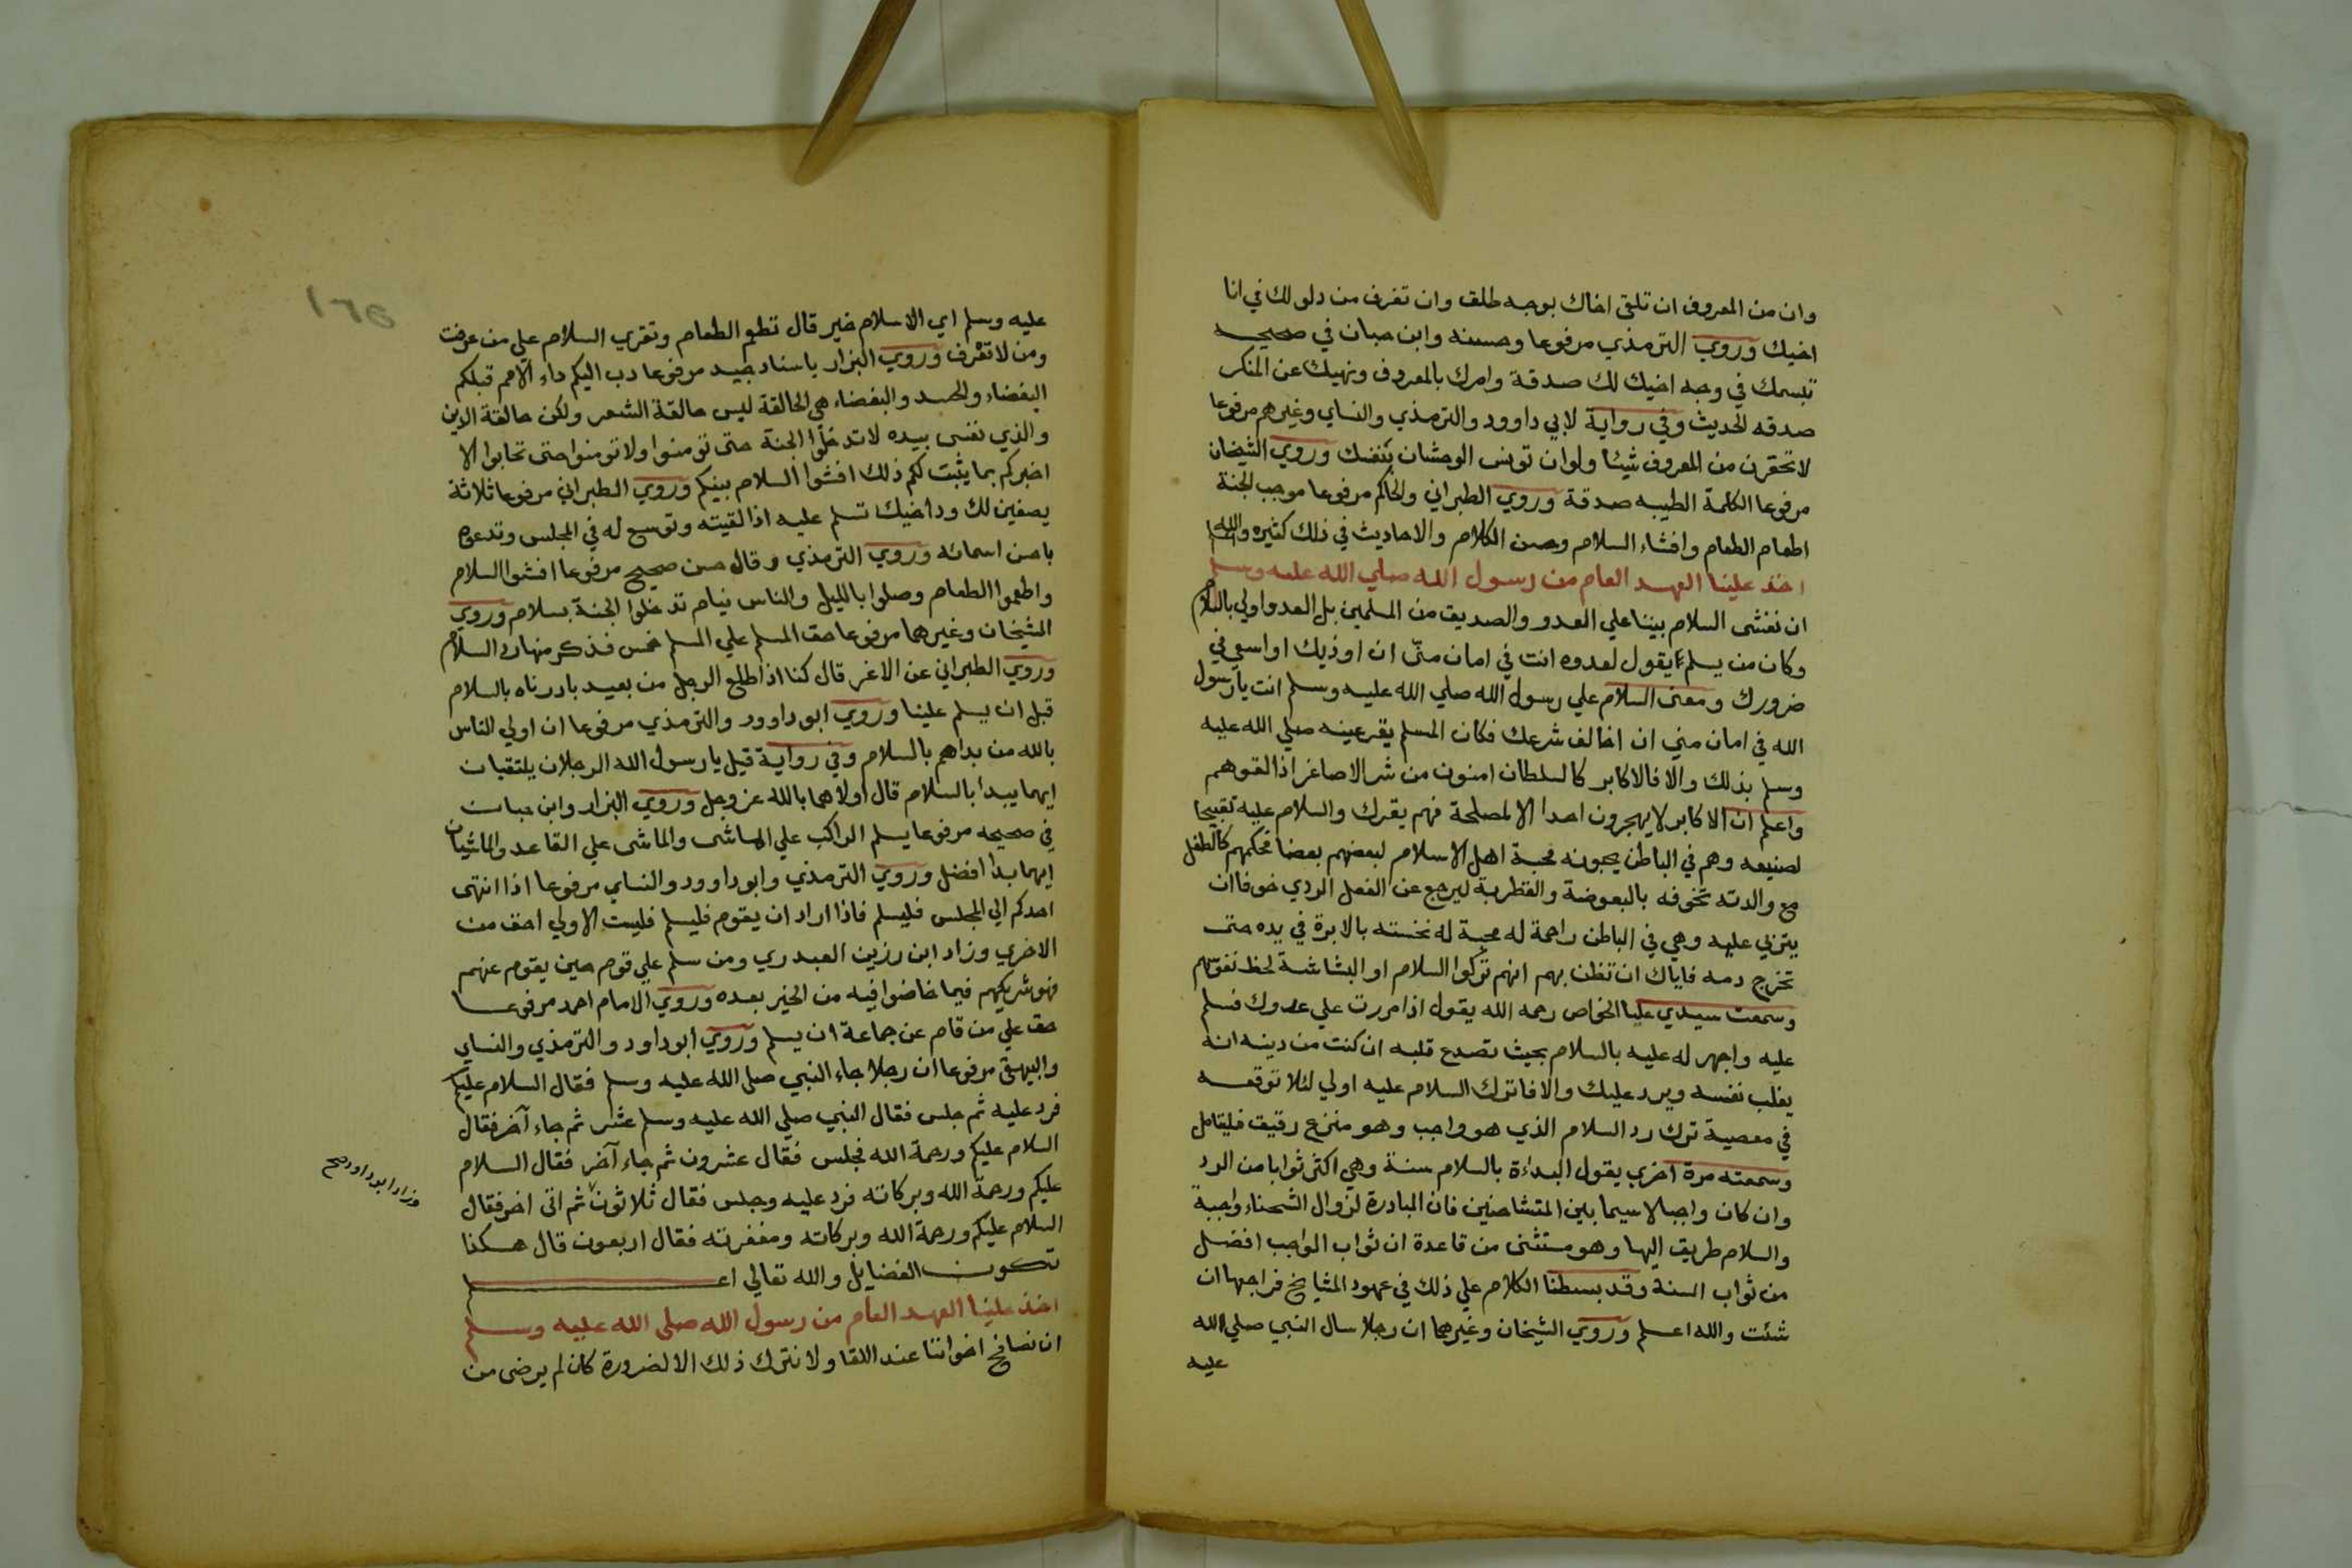 وان من المعروف ان تلقى اخاك بوجه طلق وان تفرغ من دلوك في انا
اخيك وروي الترمذي مرفوعا وحسنه وابن حبان في صحيحه
تبسمك في وجه اخيك لك صدقة وامرك بالمعروف ونهيك عن المنكر
صدقه الحديث وفي رواية لابي داوود والترمذي والنساي وغيرهم مرفوعا
لا تحقرن من المعروف شيئا ولو ان تونس الوحشان بنفسك وروي الشيخان
مرفوعا الكلمة الطيبه صدقة وروي الطبراني والحاكم مرفوعا موجب الجنة
اطعام الطعام وافشاء السلام وحسن الكلام والاحاديث في ذلك كثيره والله اعلم
اخذ علينا العهد العام من رسول الله صلي الله عليه وسلم
ان نفشى السلام بيننا علي العدو والصديق من المسلمين بل العدو اولي بالسلام
وكان من يسلم يقول لعدوه انت في امان منّي ان اوذيك او اسعي في
ضرورك ومعنى السلام علي رسول الله صلي الله عليه وسلم انت يا رسول
الله في امان مني ان اخالف شرعك فكان المسلم يقر عينه صلي الله عليه
وسلم بذلك والا فالاكابر كالسلطان امنون من شر الاصاغر اذا لقوهم
واعلم ان الاكابر لا يهجرون احدا الا لمصلحة فهم بقرك والسلام عليه تقبيحا
لصنيعه وهم في الباطن يحبونه محبة اهل الاسلام لبعضهم بعضا فحكمهم كالطفل
مع والدته تخوفه بالبعوضة والقطربة ليرجع عن الفعل الردي خوفا ان
يتربي عليه وهي في الباطن راحمة له محبة له نخسته بالابرة في يده حتى
تخرج دمه فاياك ان تظن بهم انهم تركوا السلام او البشاشة لحظ نفوسهم
وسمعت سيدي عليا الخواص رحمه الله يقول اذا مررت علي عدوك فسلم
عليه واجهر له عليه بالسلام بحيث تصدع قلبه ان كنت من دينه انه
يغلب نفسه ويرد عليك والا فاترك السلام عليه اولي لئلا توقعه
في معصية ترك رد السلام الذي هو واجب وهو منزع رقيق فليتامل
وسمعته مرة اخري يقول البداءة بالسلام سنة وهي اكثر ثوابا من الرد
وان كان واجبا لا سيما بين المتشاحنين فان المبادرة لزوال الشحناء واجبة
والسلام طريق اليها وهو مستثنى من قاعدة ان ثواب الواجب افضل
من ثواب السنة وقد بسطنا الكلام علي ذلك في عهود المشايخ فراجعها ان
شئت والله اعلم وروي الشيخان وغيرهما ان رجلا سال النبي صلي الله
عليه
عليه وسلم اي الاسلام خير قال تطعم الطعام وتقري السلام علي من عرفت
ومن لا تعرف وروي البزار باسناد جيد مرفوعا دب اليكم داء الامم قبلكم
البغضاء والحسد والبغضاء هي الحالقة ليس حالقة الشعر ولكن حالقة الدين
والذي نفسى بيده لا تدخلوا الجنة حتى تومنوا ولا تومنوا حتى تحابوا الا
اخبركم بما يثبت لكم ذلك افشوا السلام بينكم وروي الطبراني مرفوعا ثلاثة
يصفين لك ود اخيك تسلم عليه اذا لقيته وتوسع له في المجلس وتدعوه
باحسن اسمائه وروي الترمذي وقال حسن صحيح مرفوعا افشوا السلام
واطعموا الطعام وصلوا بالليل والناس نيام تدخلوا الجنة بسلام وروي
الشيخان وغيرهما مرفوعا حق المسلم علي المسلم خمس فذكر منها رد السلام
وروي الطبراني عن الاغر قال كنا اذا طلع الرجل من بعيد بادرناه بالسلام
قبل ان يسلم علينا وروي ابو داوود والترمذي مرفوعا ان اولي الناس
بالله من بداهم بالسلام وفي رواية قيل يا رسول الله الرجلان يلتقيان
ايهما يبدأ بالسلام قال اولاهما بالله عز وجل وروي البزار وابن حبان
في صحيحه مرفوعا يسلم الراكب علي الماشى والماشى علي القاعد والماشيان
ايهما بدا افضل وروي الترمذي وابو داوود والنساي مرفوعا اذا انتهى
احدكم الي المجلس فليسلم فاذا اراد ان يقوم فليسلم فليست الاولي احق من
الاخري وزاد ابن رزين العبدري ومن سلم علي قوم حين يقوم عنهم
فهو شريكهم فيما خاضوا فيه من الخير بعده وروي الامام احمد مرفوعا
حق علي من قام عن جماعة ان يسلم وروي ابو داود والترمذي والنساي
والبيهقي مرفوعا ان رجلا جاء النبي صلى الله عليه وسلم فقال السلام عليكم
فرد عليه ثم جلس فقال النبي صلي الله عليه وسلم عشر ثم جاء آخر فقال
السلام عليكم ورحمة الله فجلس فقال عشرون ثم جاء آخر فقال السلام
عليكم ورحمة الله وبركاته فرد عليه وجلس فقال ثلاثون ثم اتى اخر فقال
وزاد ابو داود صح
السلام عليكم ورحمة الله وبركاته ومغفرته فقال اربعون قال هكذا
تكون الفضايل والله تعالي اعلم
اخذ علينا العهد العام من رسول الله صلى الله عليه وسلم
ان نصافح اخواننا عند اللقا ولا نترك ذلك الا لضرورة كان لم يرضى من